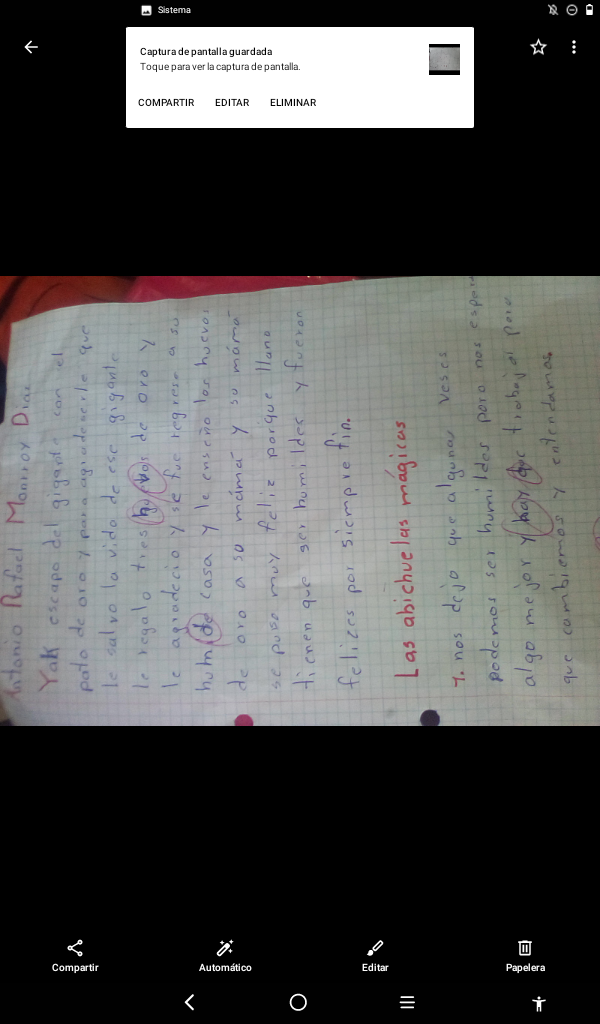 Sistema
Captura de pantalla guardada
Toque para ver la captura de pantalla.
COMPARTIR EDITAR ELIMINAR
Antonio Rafael Monrroy Dias
Yak escapo del gigante con el
pato de oro y para agradecerle que
le salvo la vida de ese gigante
le regalo tres huevos de oro y
le agradecio y se fue regreso a su
humilde casa y le enseño los huevos
de oro a su mámá y su mámá
se puso muy feliz porque llano
tienen que ser humildes y fueron
felices por siempre fin.
Las abichuelas mágicas
1. nos dejo que algunas veses
podemos ser humildes para nos espera
algo mejor y hay que trabajar para
que cambiemos y entendamos.
Compartir Automático Editar Papelera